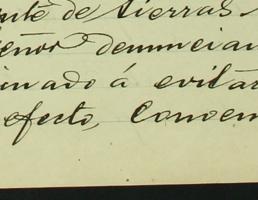 ante de tierras
eñor denuncian
inado á evitar
efecto, Conoem